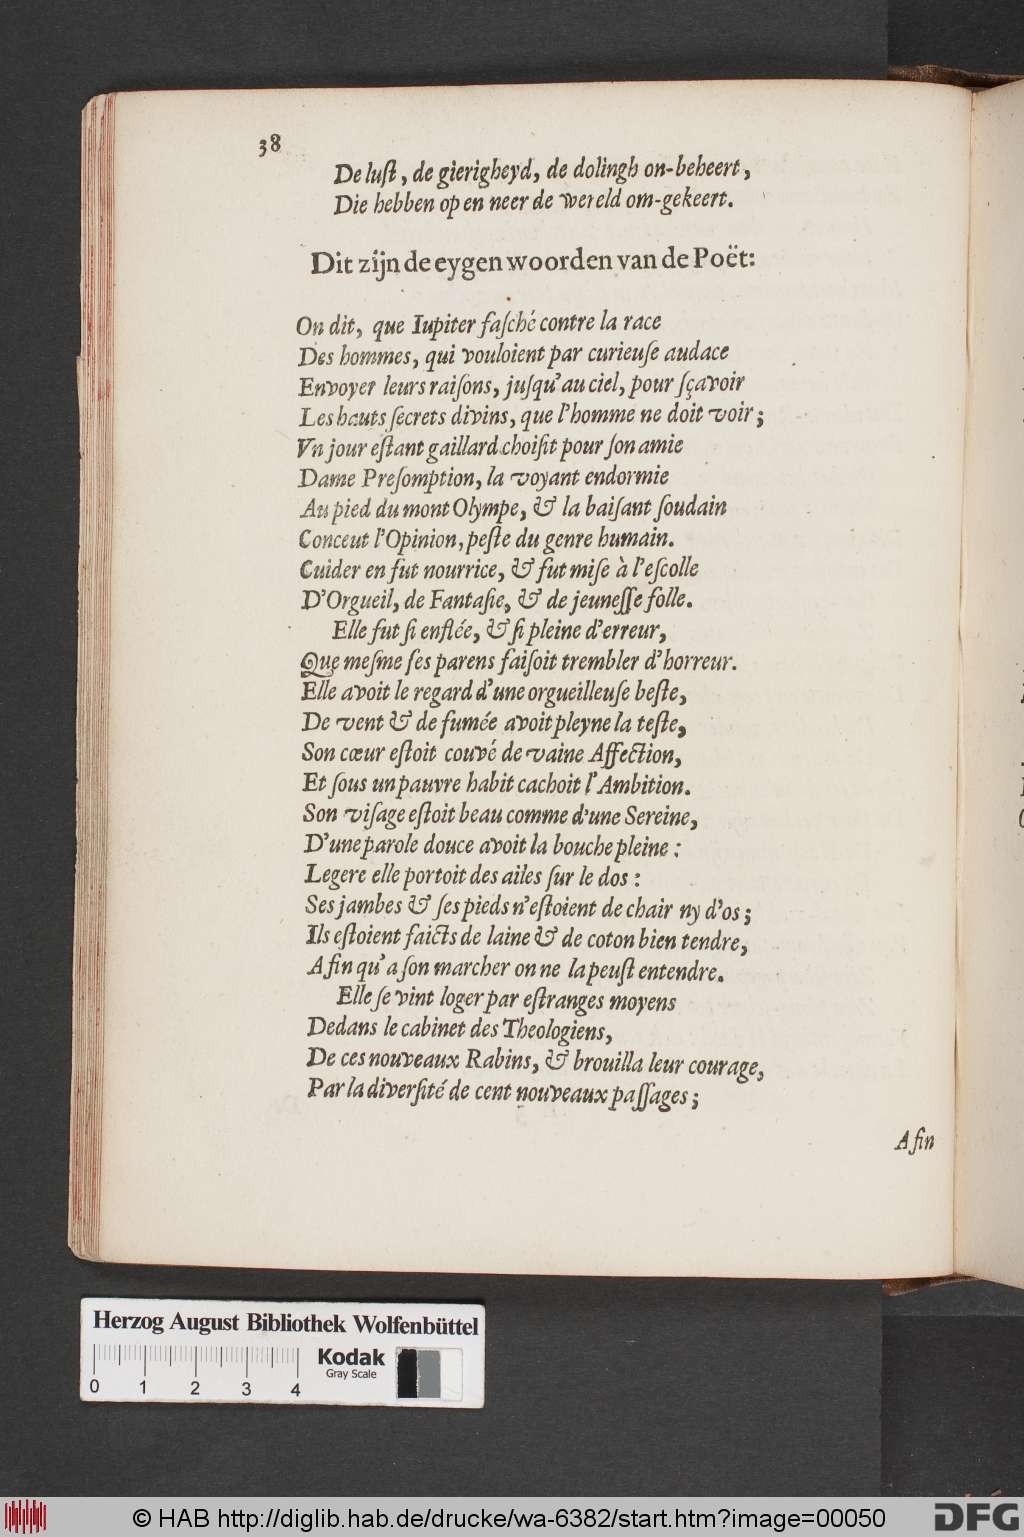 38
De lust, de gierigheyd, de dolingh on-beheert,
Die hebben op en neer de wereld om-gekeert.
Dit zijn de eygen woorden van de Poët:
On dit, que Iupiter faſché contre la race
Des hommes, qui vouloient par curieuſe audace
Envoyer leurs raiſons, juſqu'au ciel, pour ſçavoir
Les hauts ſecrets divins, que l'homme ne doit voir;
Vn jour eſtant gaillard choiſit pour ſon amie
Dame Preſomption, la voyant endormie
Au pied du mont Olympe, & la baiſant ſoudain
Conceut l'Opinion, peſte du genre humain.
Cuider en fut nourrice, & fut miſe à l'eſcolle
D'Orgueil, de Fantaſie, & de jeuneſſe folle.
Elle fut ſi enflée, & ſi pleine d'erreur,
Que meſme ſes parens faiſoit trembler d'horreur.
Elle avoit le regard d'une orgueilleuſe beſte,
De vent & de fumée avoit pleyne la teſte,
Son cœur eſtoit couvé de vaine Affection,
Et ſous un pauvre habit cachoit l'Ambition.
Son viſage eſtoit beau comme d'une Sereine,
D'une parole douce avoit la bouche pleine:
Legere elle portoit des ailes ſur le dos:
Ses jambes & ſes pieds n'eſtoient de chair ny d'os;
Ils eſtoient faicts de laine & de coton bien tendre,
Afin qu'a ſon marcher on ne la peuſt entendre.
Elle ſe vint loger par eſtranges moyens
Dedans le cabinet des Theologiens,
De ces nouveaux Rabins, & brouilla leur courage,
Par la diverſité de cent nouveaux paſſages;
Afin
Herzog August Bibliothek Wolfenbüttel
Kodak
Gray Scale
0 1 2 3 4
© HAB http://diglib.hab.de/drucke/wa-6382/start.htm?image=00050
DFG